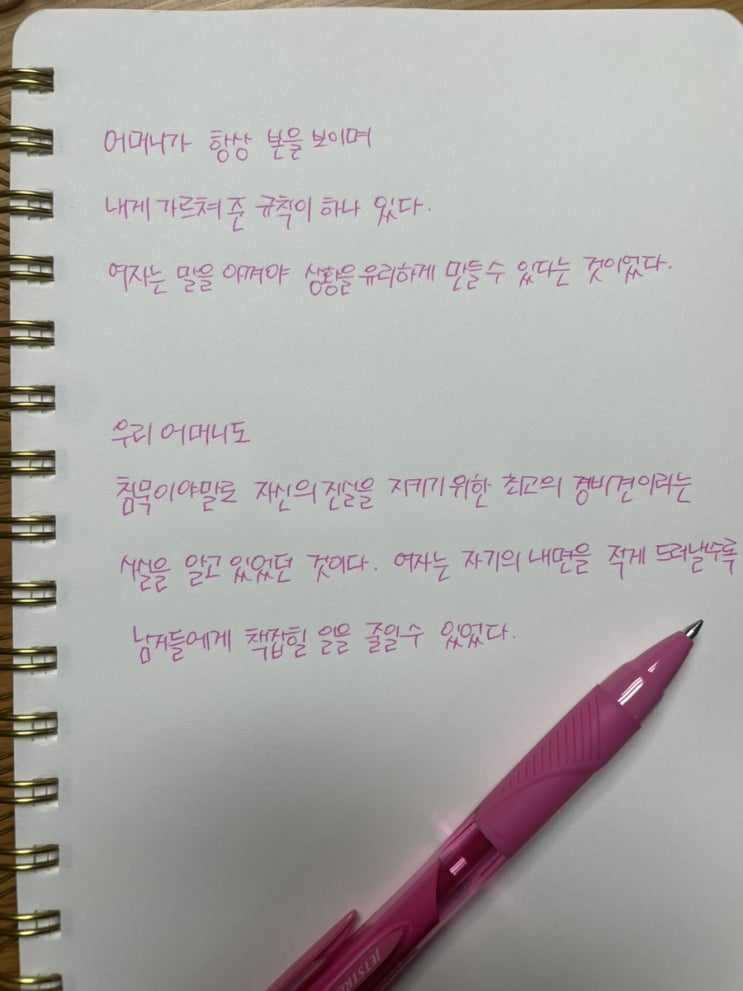 어머니가 항상 본을 보이며
내게 가르쳐 준 규칙이 하나 있다.
여자는 말을 아껴야 상황을 유리하게 만들 수 있다는 것이었다.
우리 어머니도
침묵이야말로 자신의 진실을 지키기 위한 최고의 경비견이라는
사실을 알고 있었던 것이다. 여자는 자기의 내면을 적게 드러낼수록
남자들에게 책잡힐 일을 줄일 수 있었다.